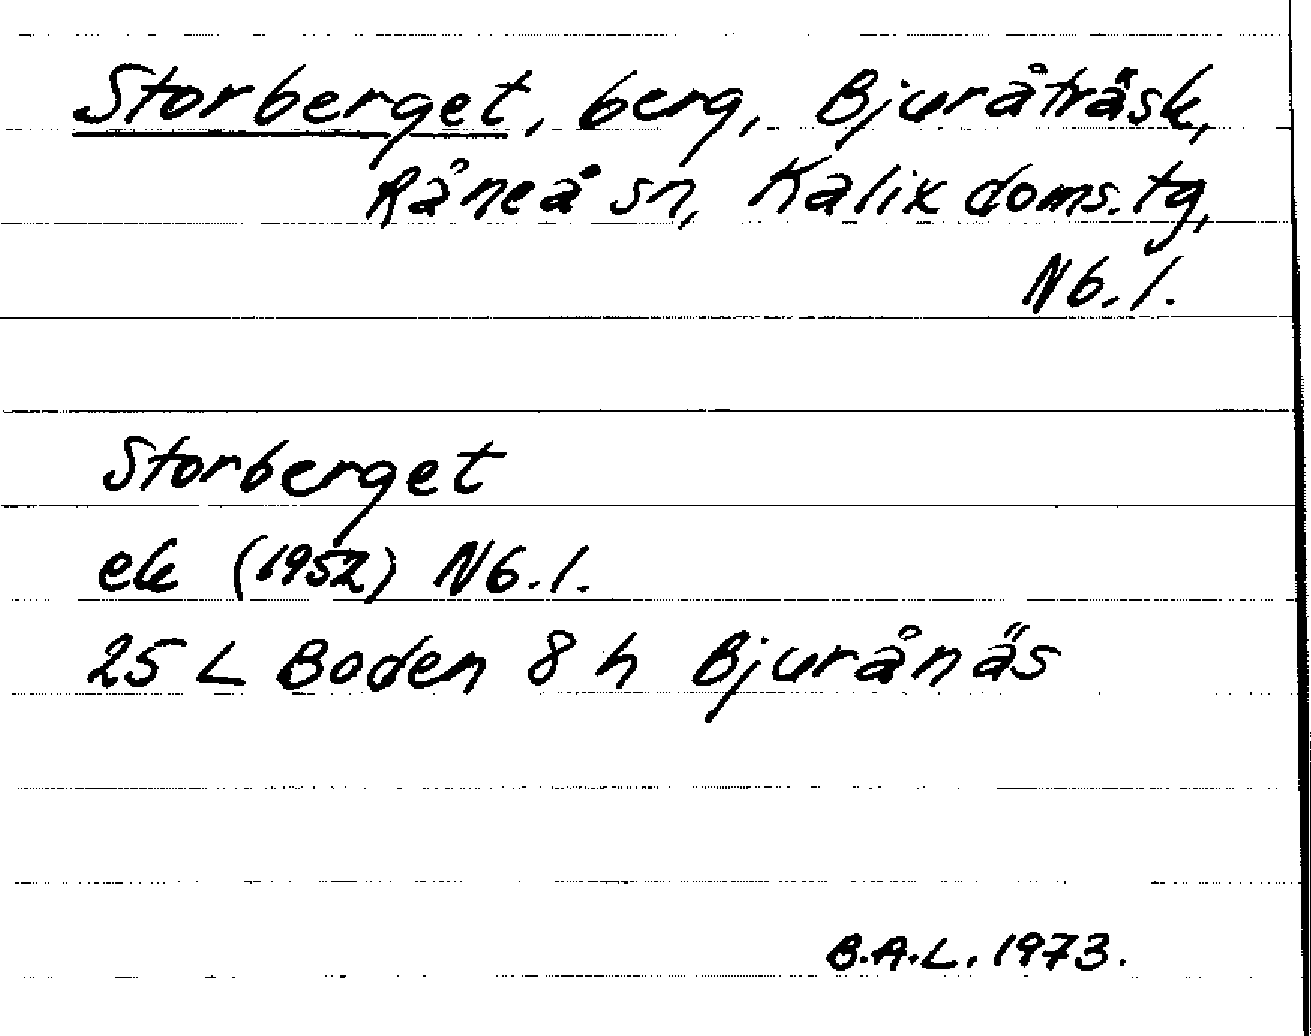 Storberget, berg, Bjuråträsk,
Råneå sn, Kalix doms.tg,
Nb.l.
Storberget
ek (1952) Nb.l.
25 L Boden 8 h Bjurånäs
B.A.L. 1973.